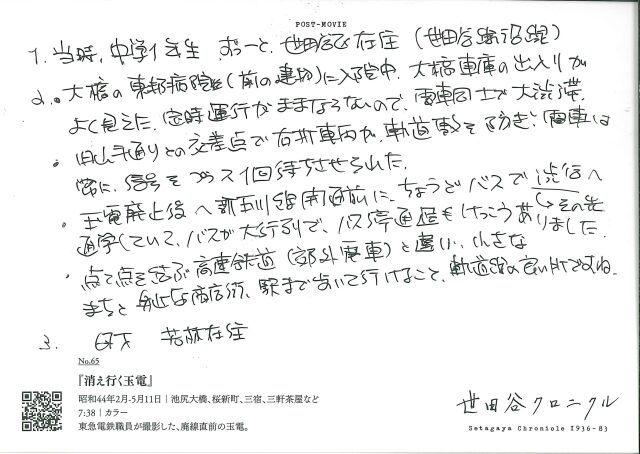 POST-MOVIE
1. 当時、中学1年生 ずーと、世田谷区在住(世田谷線沿線)
2. ・大橋の東邦病院(前の建物)に入院中、大橋車庫の出入りが
よく見えた。定時運行がままならないので、電車同士で大渋滞。
・旧山手通りとの交差点で右折車両が、軌道敷を防ぎ、電車は
常に、信号をプラス1回待ちさせられた。
・玉電廃止後〜新玉川線開通前に、ちょうどバスで渋谷へ
通学していて、バスが大行列で、バス停通過もけっこうありました。
その先
・点と点を結ぶ高速鉄道(郊外電車)と違い、小さな
まちと身近な商店街、駅まで歩いて行けること、軌道線の良い所ですね。
3. 現在 若林在住
No.65
『消え行く玉電』
昭和44年2月-5月11日|池尻大橋、桜新町、三宿、三軒茶屋など
7:38|カラー
東急電鉄職員が撮影した、廃線直前の玉電。
世田谷クロニクル
Setagaya Chronicle 1936-83